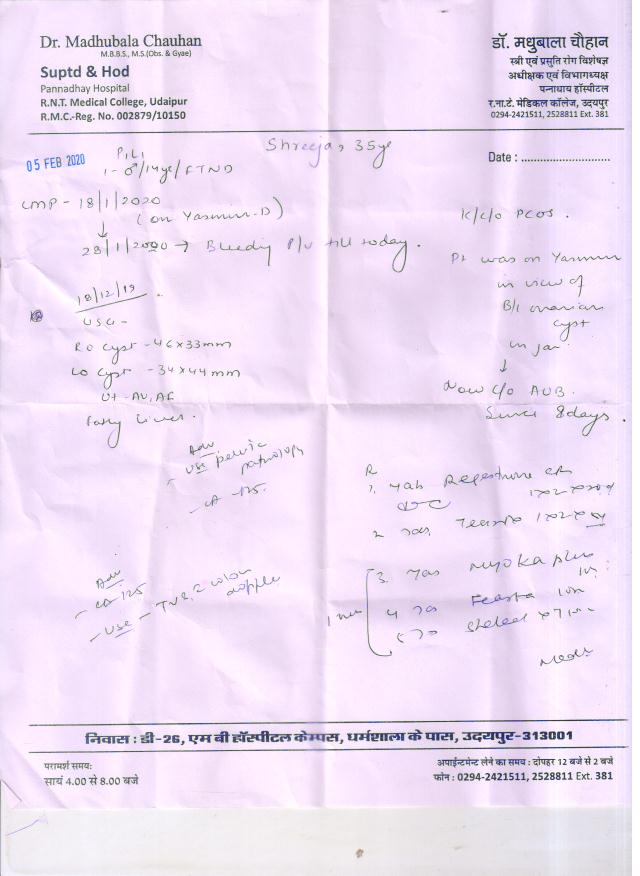 Dr. Madhubala Chauhan
M.B.B.S., M.S.(Obs. & Gyae)
Suptd & Hod
Pannadhay Hospital
R.N.T. Medical College, Udaipur
R.M.C.-Reg. No. 002879/10150
डॉ. मधुबाला चौहान
स्त्री एवं प्रसुति रोग विशेषज्ञ
अधीक्षक एवं विभागध्यक्ष
पन्नाधाय हॉस्पीटल
र.ना.टे. मेडिकल कॉलेज, उदयपुर
0294-2421511, 2528811 Ext. 381
05 FEB 2020
Shreeja, 35ye
Date : ............................
P1L1
1- ♂/14ye/FTND
LMP - 18/1/2020
(on Yasmin-D)
↓
28/1/2020 → Bleedy P/v till today.
18/12/19
USG -
RO Cyst - 46x33mm
LO Cyst - 34x44mm
Ut - AV, AF
Fatty Liver.
K/C/O PCOS.
Pt was on Yasmin
in view of
B/L ovarian
cyst
in Jan
↓
Now C/O AUB
Since 8days.
Adv
- USG pelvic
pathology
- CA-125.
Adv
- CA-125
- USG - TVS, 2 colour
dopple
R
1. Tab Regestrone CR
2.
3. Tab Myoka plus
4
5
निवास : डी-26, एम बी हॉस्पीटल केम्पस, धर्मशाला के पास, उदयपुर-313001
परामर्श समय:
सायं 4.00 से 8.00 बजे
अपाईन्टमेन्ट लेने का समय : दोपहर 12 बजे से 2 बजे
फोन : 0294-2421511, 2528811 Ext. 381